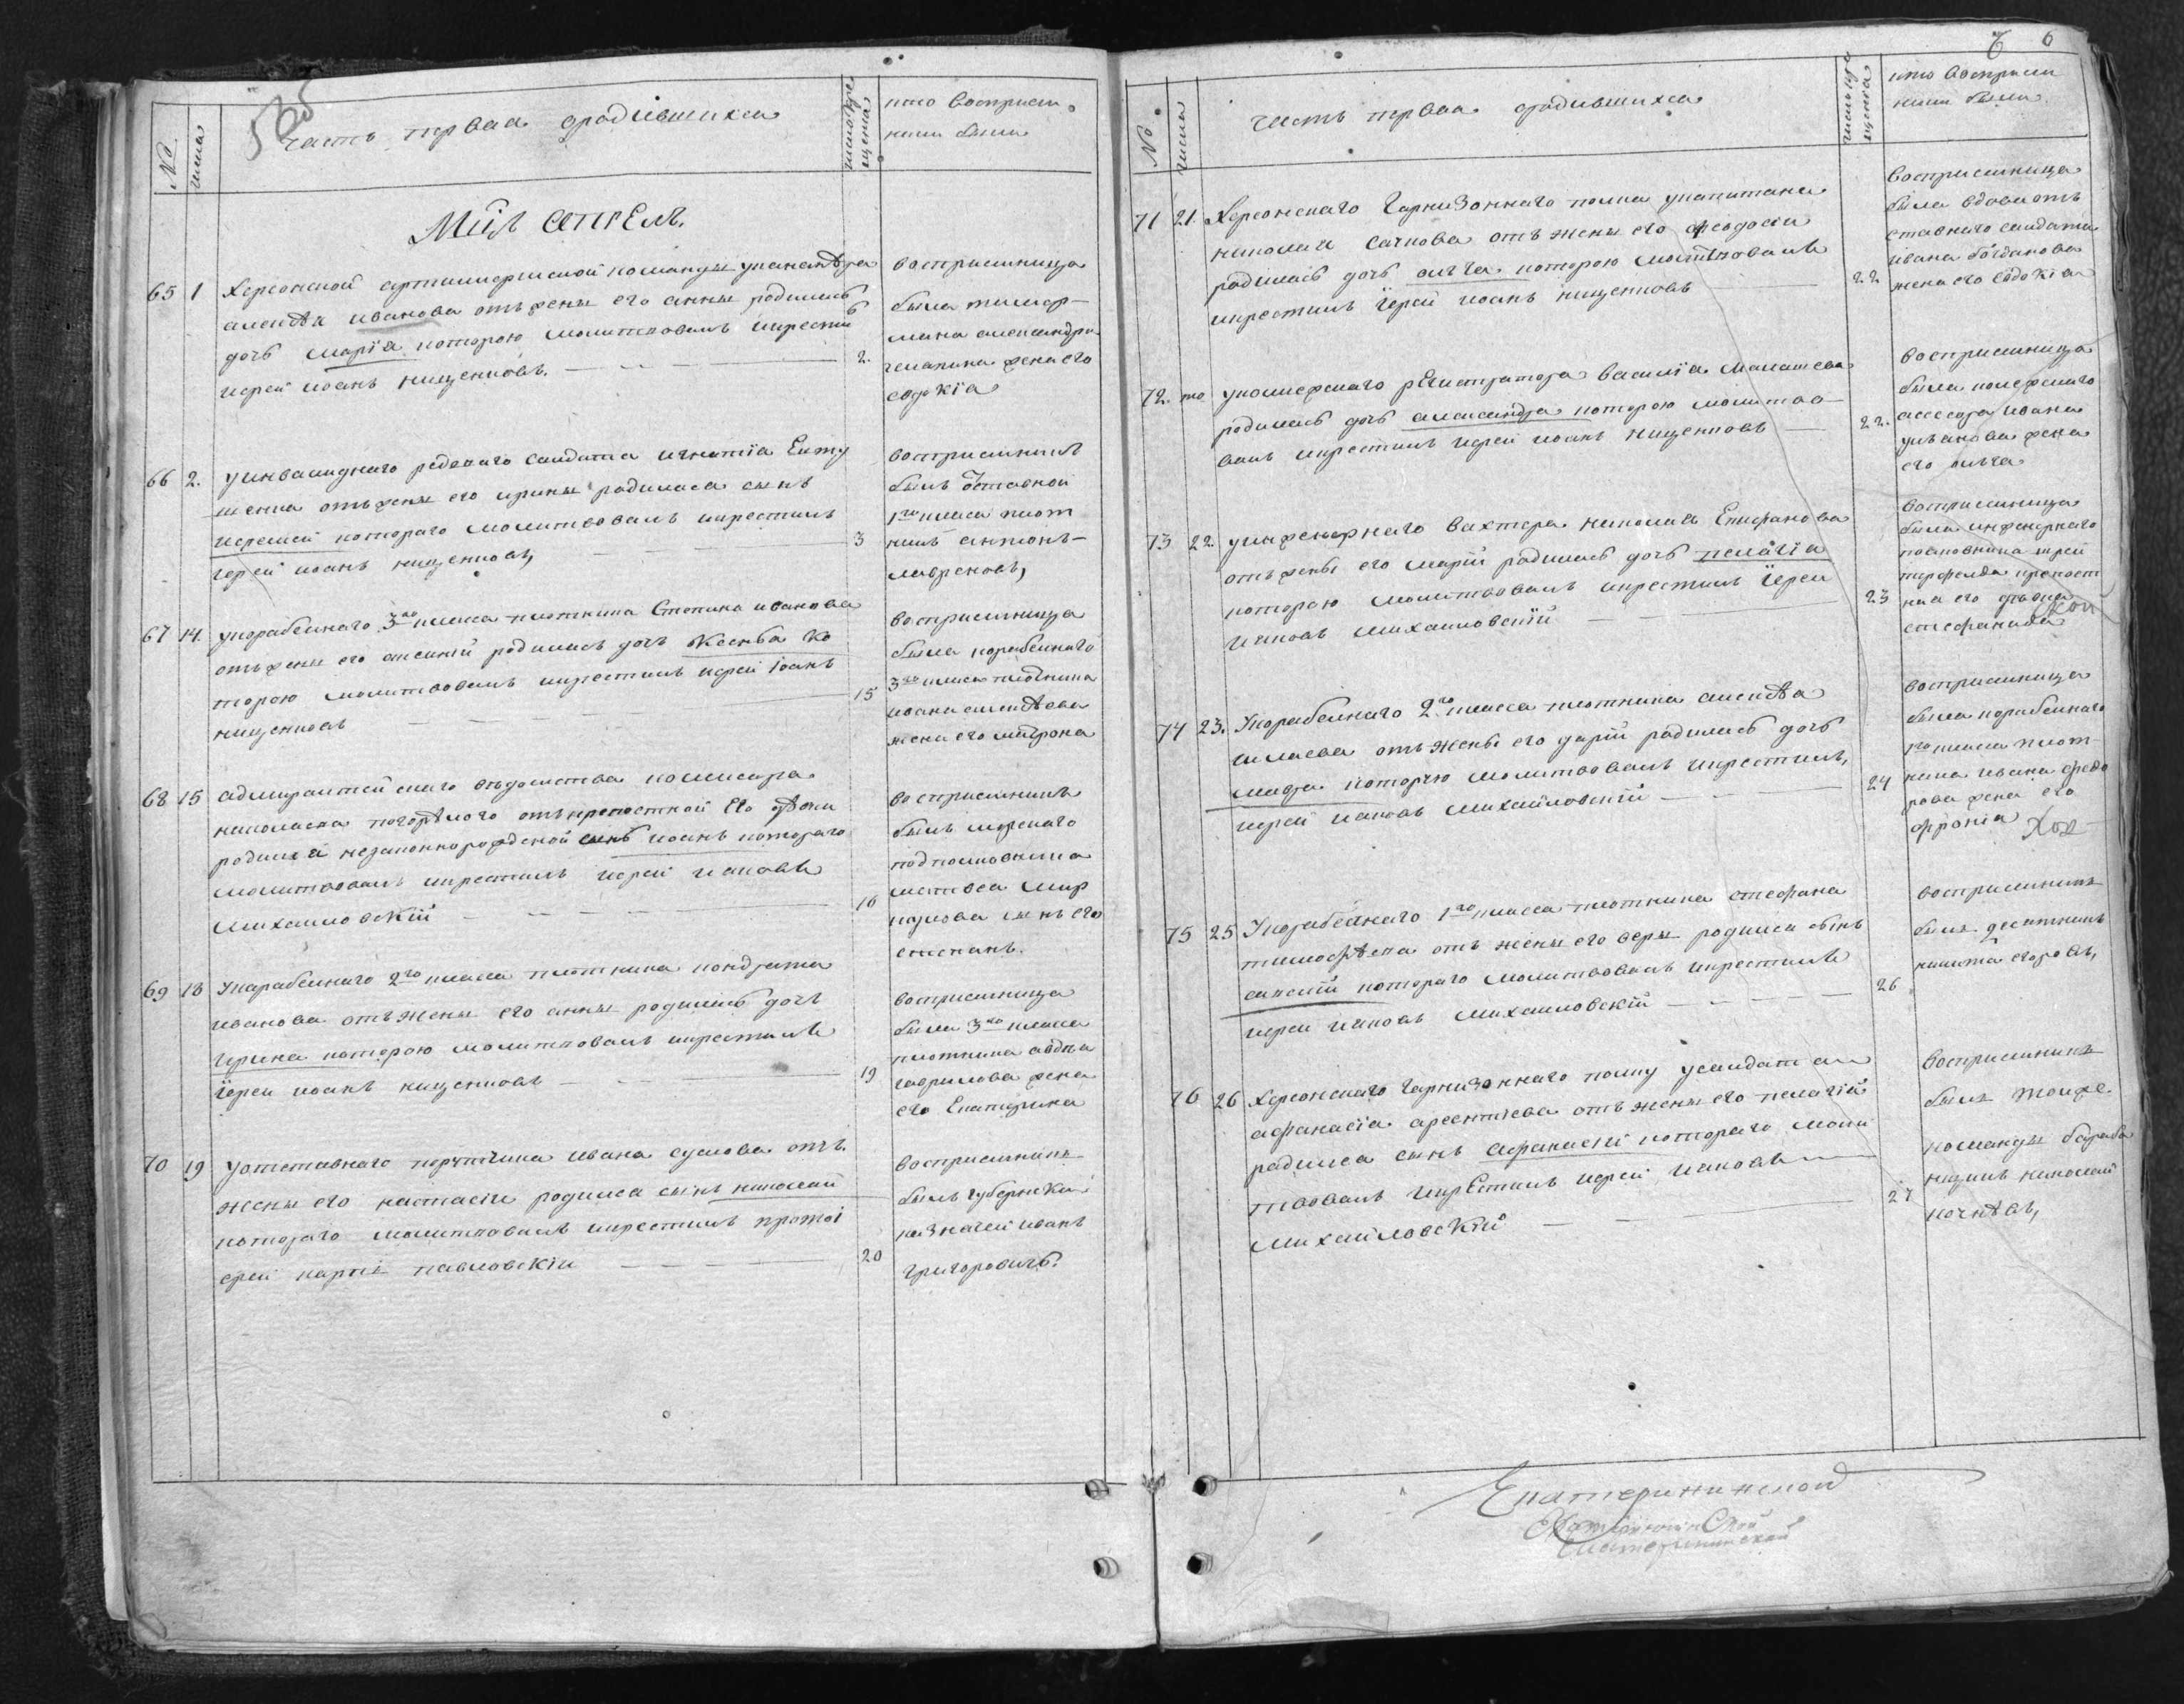 №
числа
часть перваа ородившихса
число кре
щениа
кто восприем
ники были
Мцъ апрель.
65 1 Херсонской артиллериской команды уканонѣра
алексѣя иванова отъ жены его анны родилась
дочь мариа которою молитвовалъ икрестилъ
иерей иоанъ нищенковъ. 2.
восприемница
была
александра
жена его
евдокіа
66 2. уинвалиднаго рядоваго салдата игнатіа Евту
шенка отъ жены его ирины родилса сынъ
иеремей котораго молитвовалъ икрестилъ
иерей иоанъ нищенковъ, 3
восприемникъ
былъ отставной
1го класа плот
никъ антонъ
лавреновъ,
67 14. укорабелнаго 3го класа плотника Степана иванова
отъ жены его аксиніи родилась дочь Ксеньа ко
торою молитвовалъ икрестилъ иерей іоанъ
нищенковъ 15
восприемница
была корабелнаго
3го класа плотника
ивана алексѣева
жена его матрона
68 15 адмиралтейскаго въдомства комисара
николаева погорѣлого отъ крепостной Его дѣвки
родился незаконнорожденой сынъ иоанъ котораго
молитвовалъ икрестилъ иерей иаковъ
михаиловскій 16
восприемникъ
былъ морскаго
подполковника
матвеа мир
кулова сынъ его
степанъ.
69 18 Укарабелнаго 2го класса плотника кондрата
иванова отъ жены его анны родилась дочь
ирина которою молитвовалъ икрестилъ
иереи иоанъ нищенковъ 19
восприемница
была 3го класса
плотника авдѣа
гаврилова жена
его Екатерина
70 19 уотставнаго порутчика ивана суслова отъ
жены его настасіи родилса сынъ николай
котораго молитвовалъ икрестилъ протоі
ерей карпъ павловскіи 20
восприемникъ
былъ губернски
казначей иванъ
григоровичь.
6 6
№
числа
часть перваа ородившихса
число кре
щениа
кто восприем
ники были
71 21. Херсонскаго гарнизоннаго полка укапитана
николаа сачкова отъ жены его феодосіи
родилась дочь ольга которою молитвовалъ
икрестилъ иерей иоанъ нищенковъ 22
восприемница
была вдова отъ
ставнаго салдата
ивана богданова
жена его евдокіа
72. то уколежскаго регистратора василіа малашева
родилась дочь александра которою молитво
валъ икрестилъ иерей иоанъ нищенковъ 22.
восприемница
была колежскаго
асесора ивана
ульанова жена
его ольга
73 22. уинженернаго вахтера николаа Епифанова
отъ жены его маріи родилась дочь пелагіа
которою молитвовалъ икрестилъ иереи
иаковъ михаиловскій 23
восприемница
была инженернаго
полковника
крепост
наа его дѣвка
стефанида
74 23. Укорабелнаго 2го класса плотника алексѣа
отъ жены его даріи родилась дочь
мавра которою молитвовалъ икрестилъ,
иерей иаковъ михайловскій 24
восприемница
была корабелнаго
1го класа плот
ника ивана федо
рова жена его
75 25 Укорабелнаго 1го класса плотника стефана
тимофѣева отъ жены его веры родилса сынъ
алексій котораго молитвовалъ икрестилъ
иереи иаковъ михаиловскій 26
восприемникъ
былъ десятникъ
никита егоровъ,
76 26 Херсонскаго гарнизоннаго полку усалдата
афанасіа арсентіева отъ жены его пелагіи
родилса сынъ афанасій котораго моли
твовалъ икрестилъ иерей иаковъ
михайловскій 27
восприемникъ
былъ тойже
команды бараба
нщикъ николай
кочнѣвъ,
Екатерининской
Екатерининской